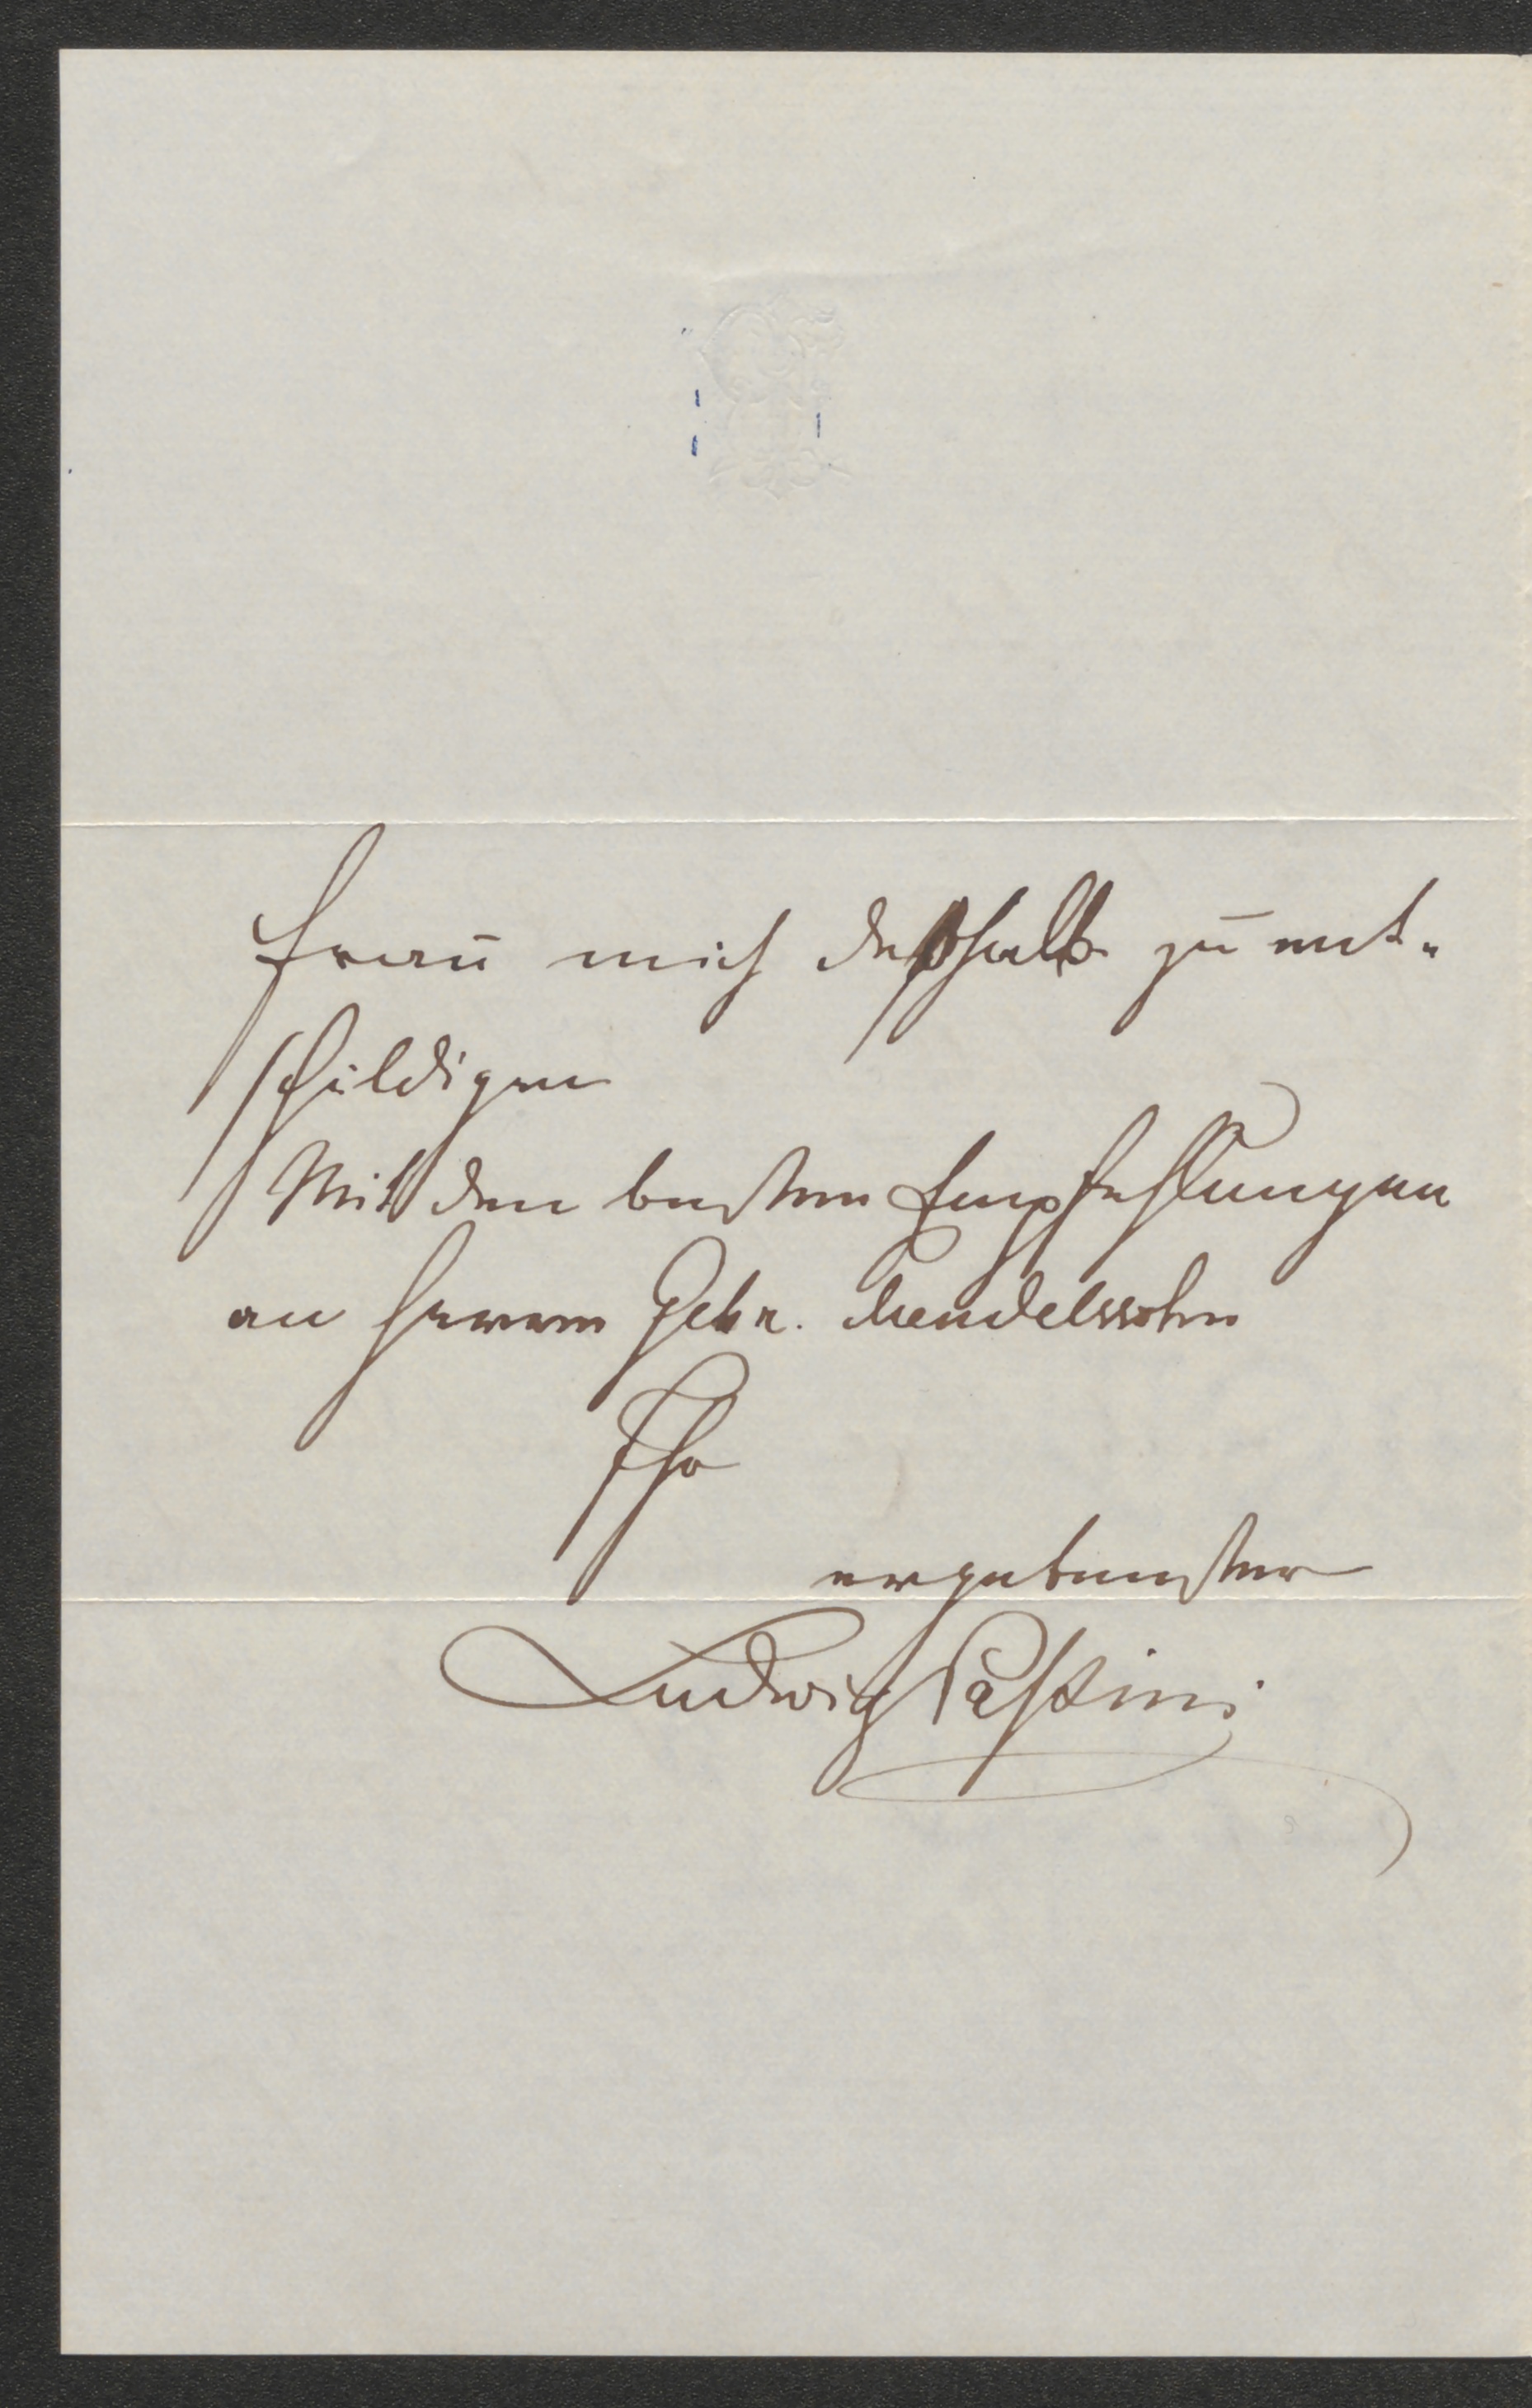 Frau mich deßhalb zu ent-
schuldigen
Mit den besten Empfehlungen
an Herren Gebr. Mendelssohn
Ihr
ergebenster
Ludwig Passini